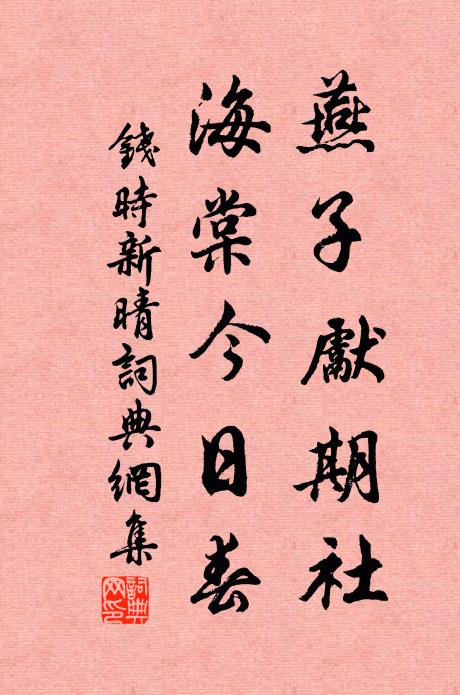 燕子獻期社
海棠今日春
錢時新晴詞典網集
詞典网印